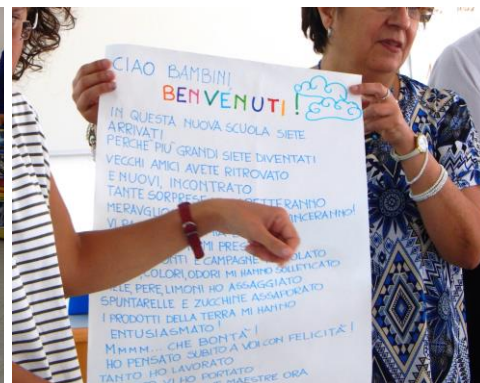 CIAO BAMBINI,
BENVENUTI!
IN QUESTA NUOVA SCUOLA SIETE
ARRIVATI
PERCHE' PIU' GRANDI SIETE DIVENTATI
VECCHI AMICI AVETE RITROVATO
E NUOVI, INCONTRATO
TANTE SORPRESE ETTERANNO
MERAVIGLIO INCERANNO!
VI
MI PRES
E CAMPAGNE OLATO
COLORI, ODORI MI HANNO SOLLETICATO
PERE, LIMONI HO ASSAGGIATO
SPUNTARELLE E ZUCCHINE ASSAPORATO
I PRODOTTI DELLA TERRA MI HANNO
ENTUSIASMATO!
MMMM... CHE BONTA'!
HO PENSATO SUBITO A VOI CON FELICITA'!
TANTO HO LAVORATO
VI HO PORTATO
MAESTRE ORA